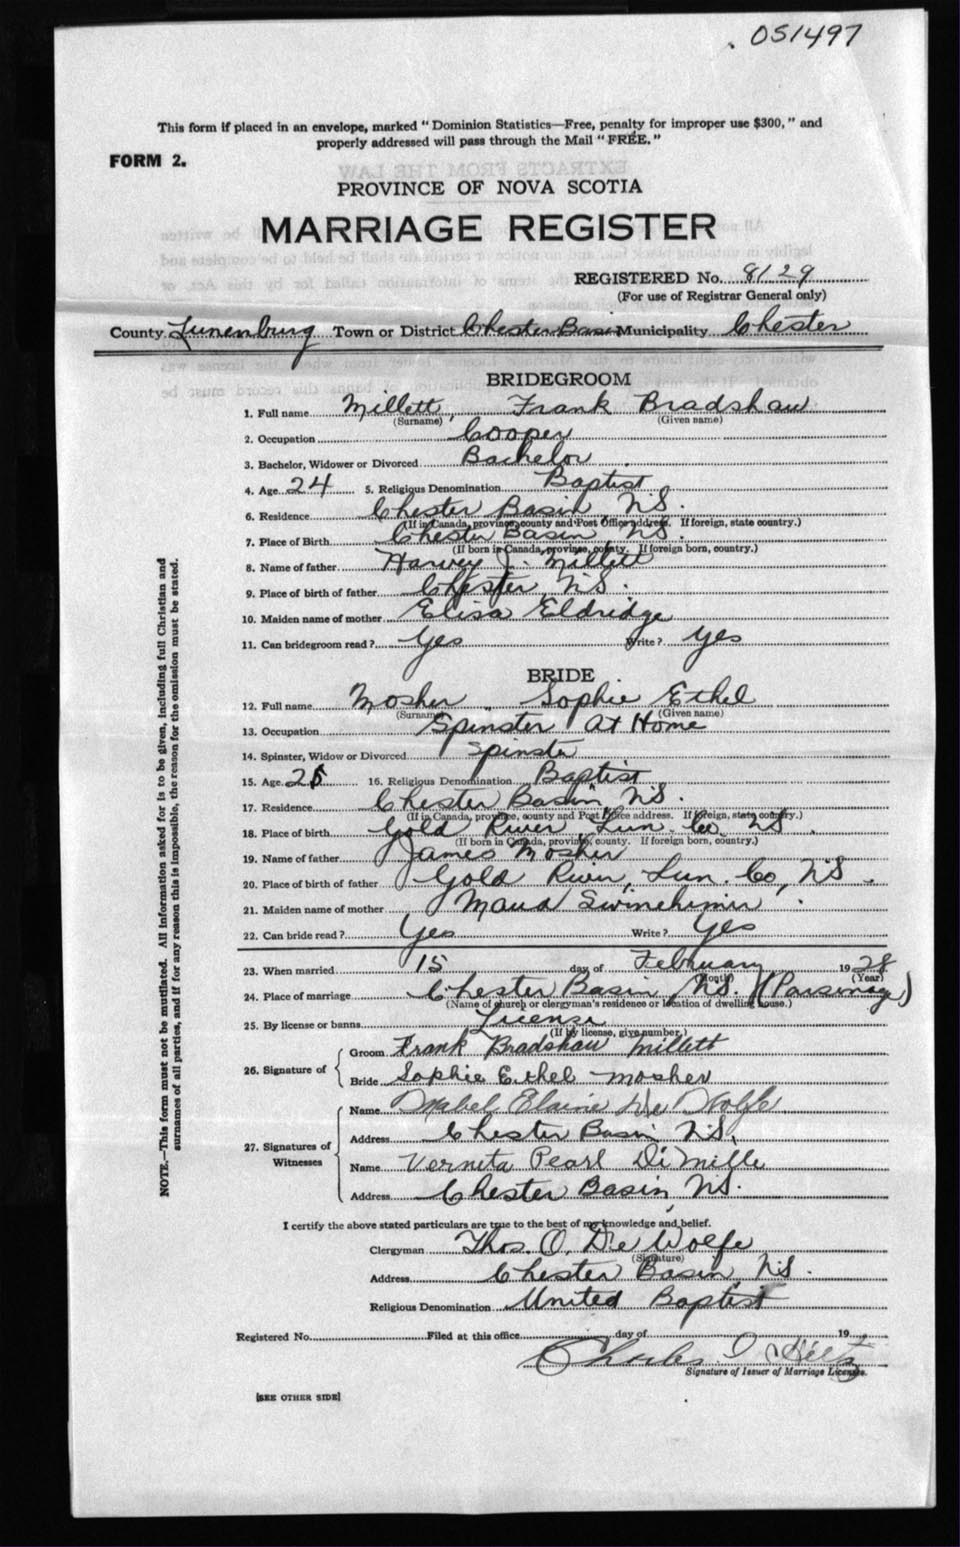 051497
This form if placed in an envelope, marked "Dominion Statistics—Free, penalty for improper use $300," and
properly addressed will pass through the Mail "FREE."
FORM 2.
PROVINCE OF NOVA SCOTIA
MARRIAGE REGISTER
REGISTERED No. 8129
(For use of Registrar General only)
County Lunenburg Town or District Chester Basin Municipality Chester
BRIDEGROOM
1. Full name Millett, Frank Bradshaw
(Surname) (Given name)
2. Occupation Cooper
3. Bachelor, Widower or Divorced Bachelor
4. Age 24 5. Religious Denomination Baptist
6. Residence Chester Basin, N.S.
(If in Canada, province, county and Post Office address. If foreign, state country.)
7. Place of Birth Chester Basin N.S.
(If born in Canada, province, county. If foreign born, country.)
8. Name of father Harvey J. Millett
9. Place of birth of father Chester, N.S.
10. Maiden name of mother Elisa Eldridge
11. Can bridegroom read? Yes Write? Yes
BRIDE
12. Full name Mosher, Sophie Ethel
(Surname) (Given name)
13. Occupation Spinster At Home
14. Spinster, Widow or Divorced Spinster
15. Age 25 16. Religious Denomination Baptist
17. Residence Chester Basin, N.S.
(If in Canada, province, county and Post Office address. If foreign, state country.)
18. Place of birth Gold River, Lun. Co. N.S.
(If born in Canada, province, county. If foreign born, country.)
19. Name of father James Mosher
20. Place of birth of father Gold River, Lun. Co, N.S.
21. Maiden name of mother Maud Swinehimir
22. Can bride read? Yes Write? Yes
23. When married 15 day of February 1928
(Month) (Year)
24. Place of marriage Chester Basin, N.S. (Parsonage)
(Name of church or clergyman's residence or location of dwelling house.)
25. By license or banns License
(If by license, give number.)
26. Signature of
Groom Frank Bradshaw Millett
Bride Sophie Ethel Mosher
27. Signatures of Witnesses
Name Mabel Elaine De Wolfe
Address Chester Basin N.S.
Name Verneta Pearl DiMille
Address Chester Basin, N.S.
I certify the above stated particulars are true to the best of my knowledge and belief.
Clergyman Thos. O. De Wolfe
(Signature)
Address Chester Basin, N.S.
Religious Denomination United Baptist
Registered No. Filed at this office day of 19
Charles
Signature of Issuer of Marriage Licenses.
[SEE OTHER SIDE]
NOTE.—This form must not be mutilated. All information asked for is to be given, including full Christian and
surnames of all parties, and if for any reason this is impossible, the reason for the omission must be stated.